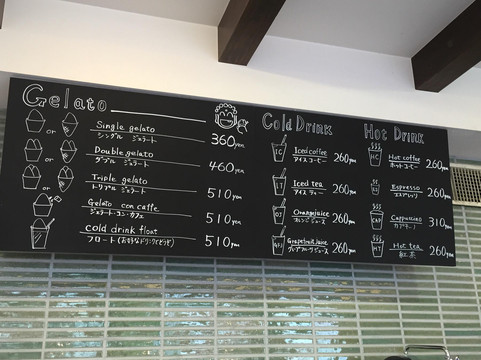 Gelato
or
Single gelato
シングル ジェラート
360yen
or
Double gelato
ダブル ジェラート
460yen
or
Triple gelato
トリプル ジェラート
510yen
Gelato con caffe
ジェラート・コン・カフェ
510yen
cold drink float
フロート(お好きなドリンクをどうぞ)
510yen
Cold Drink
IC
Iced coffee
アイスコーヒー
260yen
IT
Iced tea
アイスティー
260yen
OJ
Orange juice
オレンジジュース
260yen
GFJ
Grapefruit juice
グレープフルーツジュース
260yen
Hot Drink
HC
Hot coffee
ホットコーヒー
260yen
Espresso
エスプレッソ
260yen
Cappuccino
カプチーノ
310yen
HT
Hot tea
紅茶
260yen